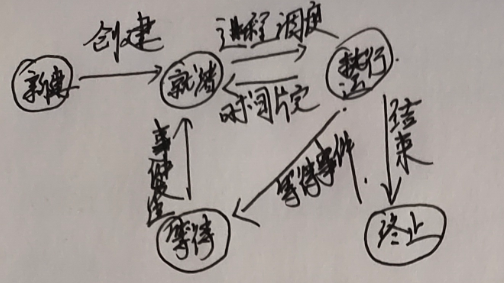 创建
进程调度
新建
就绪
执行
时间片完
结束
等待事件
事件发生
等待
终止